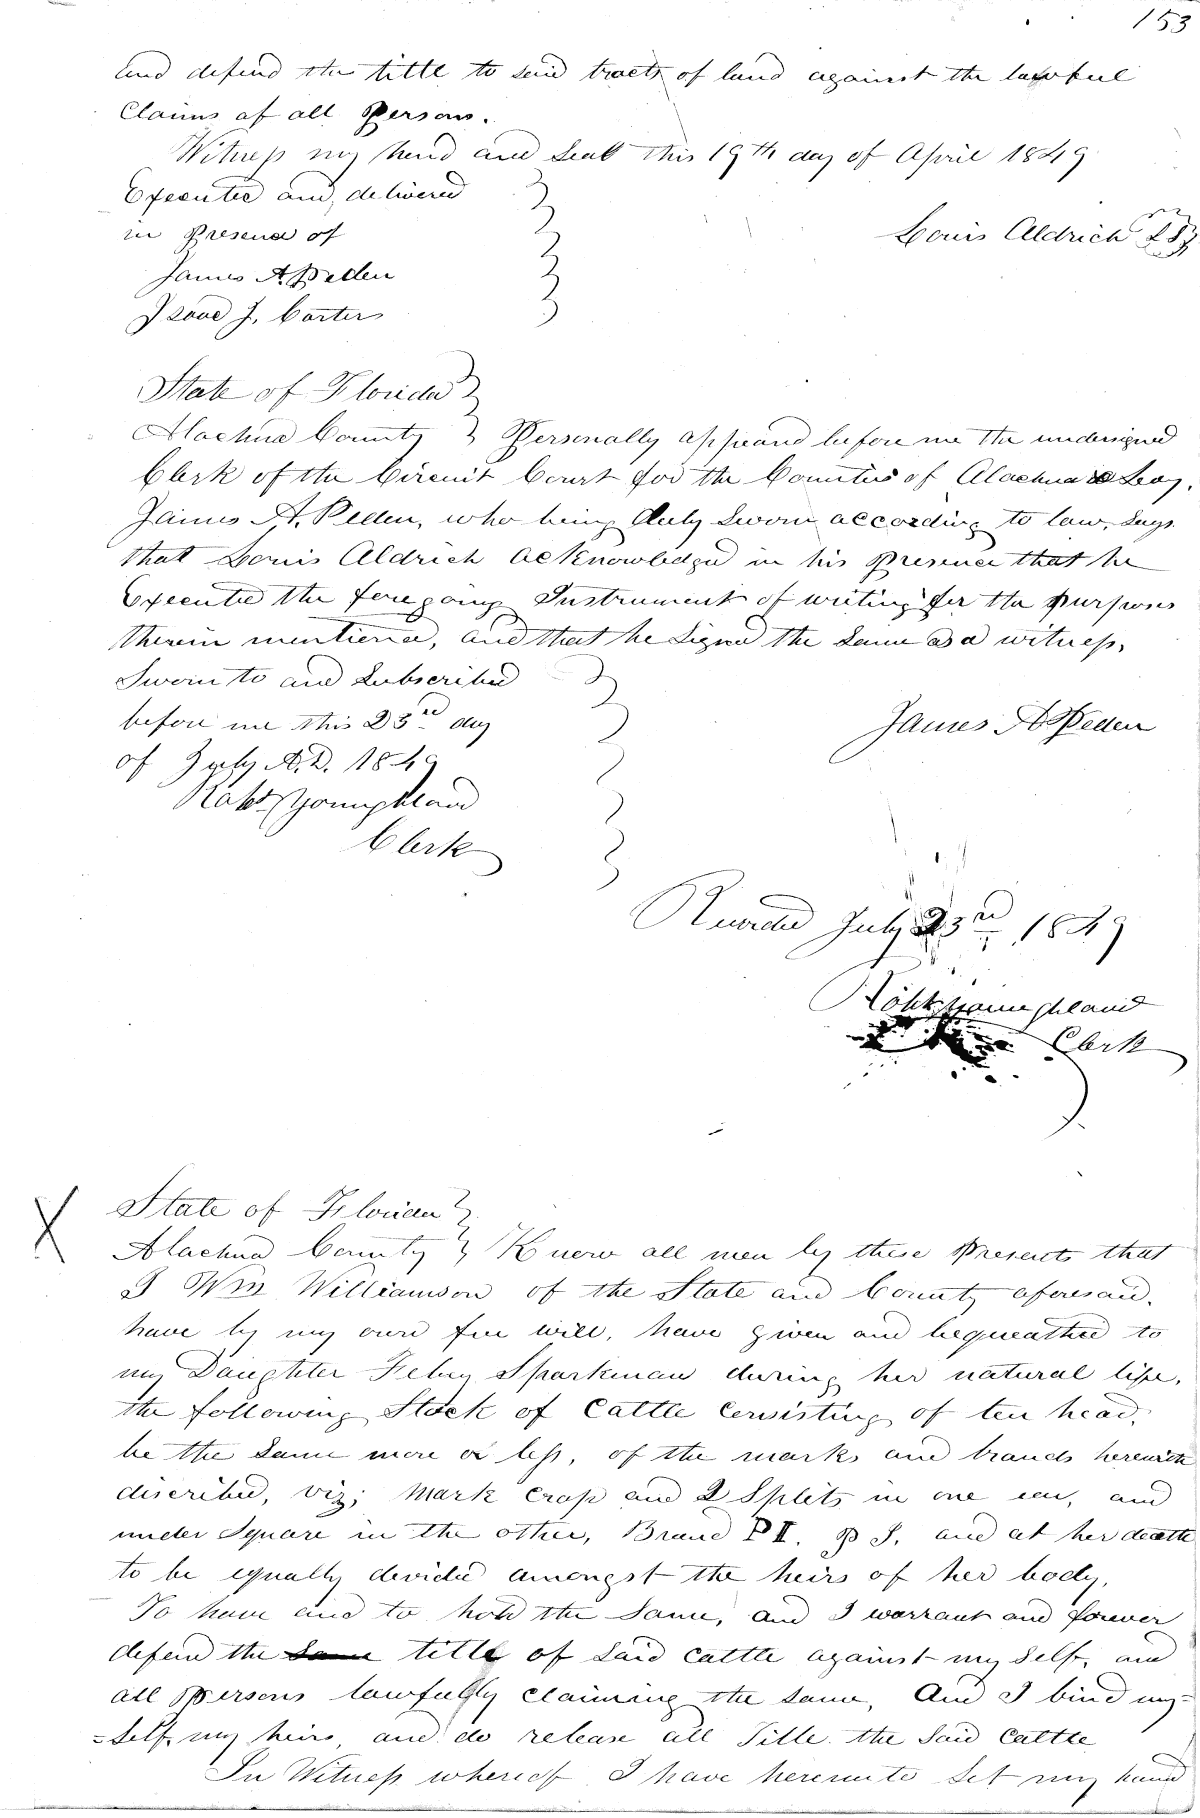 153
and defend the title to said tracts of land against the lawful
Claims of all Persons.
Witness my hand and Seal this 19th day of April 1849
Executed and delivered
in Presence of
Louis Aldrich LS
James A. Peden
Isaac J. Carter
State of Florida
Alachua County Personally appeared before me the undersigned
Clerk of the Circuit Court for the Counties of Alachua & Levy,
James A. Peden, who being duly Sworn according to law, Says
that Louis Aldrich acknowledged in his Presence that he
Executed the foregoing Instrument of writing for the purposes
therein mentioned, and that he Signed the Same as a witness,
Sworn to and Subscribed
before me this 23rd day
James A Peden
of July A.D. 1849
Robt Youngblood
Clerk
Recorded July 23rd 1849
Robt Youngblood
Clerk
X
State of Florida
Alachua County Know all men by these Presents that
I Wm Williamson of the State and County aforesaid.
have by my own free will, have given and bequeathed to
my Daughter Feby Sparkman during her natural life,
the following Stock of Cattle Consisting of ten head,
be the Same more or less, of the marks and brands herewith
discribed, viz; Mark Crop and 2 Splits in one ear, and
under Square in the other, Brand P I. and at her death
to be equally devided amongst the heirs of her body,
To have and to hold the Same, and I warrant and forever
defend the Same title of Said Cattle against my Self, and
all Persons lawfully Claiming the Same, And I bind my=
=Self, my heirs, and do release all Title the Said Cattle
In Witness whereof I have hereunto Set my hand